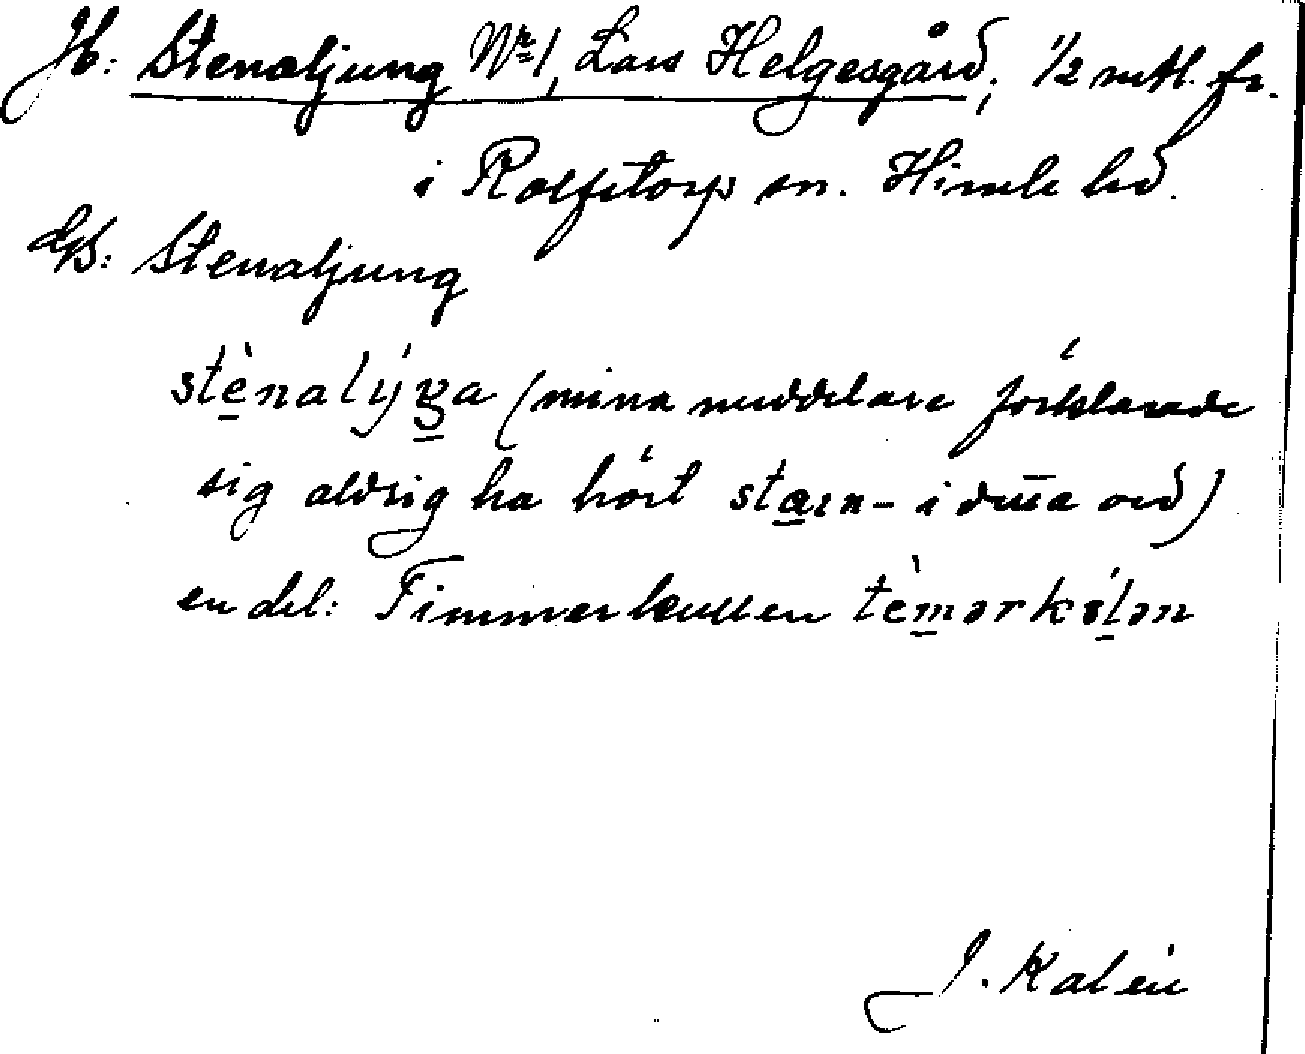 JB: Stenaljung Nr 1, Lars Helgesgård; 1/2 mtl. fr.
i Rolfstorp sn. Himle hd.
GS: Stenaljung
stènalýŋa (mina meddelare förklarade
sig aldrig ha hört stæin- i dessa ord)
en del: Timmerkullen tèmərkələn
J. Kalén